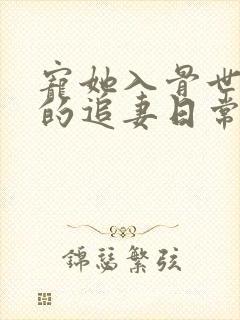 寵她入骨世
的追妻日常
錦瑟繁弦